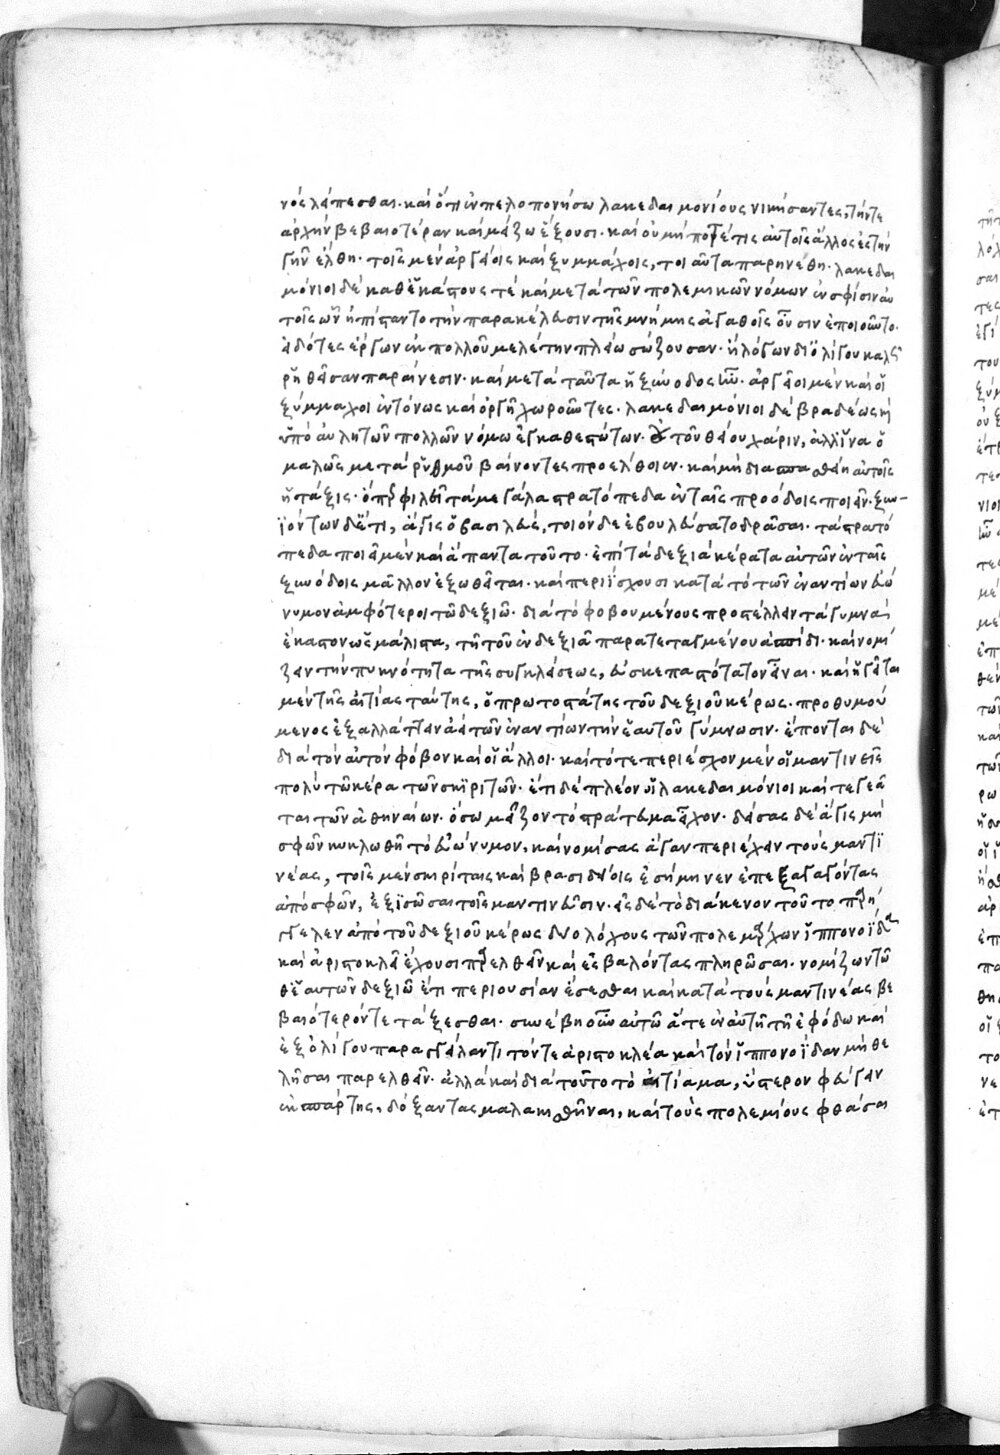 νὸς λείπεσθαι· καὶ ὅτι ἐν πελοπονήσω λακεδαιμονίους νικήσαντες, τήντε
ἀρχὴν βεβαιοτέραν καὶ μείζω ἕξουσι· καὶ οὐ μή ποτέ τις αὐτοῖς ἄλλος ἐς τὴν
γῆν ἔλθη· τοῖς μὲν ἀργείοις καὶ ξυμμάχοις, τοιαῦτα παρηνέθη· λακεδαι
μόνιοι δὲ καθ' ἑκάστους τὲ καὶ μετὰ τῶν πολεμικῶν νόμων ἐν σφίσιν αὐ
τοῖς ὧν ἠπίσταντο τὴν παρακέλευσιν τῆς μνήμης ἀγαθοῖς οὖσιν ἐποιοῦντο·
εἰδότες ἔργων ἐκ πολλοῦ μελέτην πλείω σώζουσαν· ἢ λόγων δι' ὀλίγου καλῶς
ῥηθεῖσαν παραίνεσιν· καὶ μετὰ ταῦτα ἡ ξύνοδος ἦν· ἀργεῖοι μὲν καὶ οἱ
ξύμμαχοι ἐντόνως καὶ ὀργῆ χωροῦντες· λακεδαιμόνιοι δὲ βραδέως καὶ
ὑπὸ αὐλητῶν πολλῶν νόμω ἐγκαθεστώτων· οὐ τοῦ θείου χάριν, ἀλλ' ἵνα ὁ
μαλῶς μετὰ ῥυθμοῦ βαίνοντες προέλθοιεν· καὶ μὴ διασπασθείη αὐτοῖς
ἡ τάξις· ὅπερ φιλεῖ τὰ μεγάλα στρατόπεδα ἐν ταῖς προόδοις ποιεῖν· ξυν-
ϊόντων δ' ἔτι, ἆγις ὁ βασιλεὺς, τοιόνδε ἐβουλεύσατο δρᾶσαι· τὰ στρατό
πεδα ποιεῖ μὲν καὶ ἅπαντα τοῦτο· ἐπὶ τὰ δεξιὰ κέρατα αὐτῶν ἐν ταῖς
ξυνόδοις μᾶλλον ἐξωθεῖται· καὶ περιΐσχουσι κατὰ τὸ τῶν ἐναντίων εὐώ
νυμον ἀμφότεροι τῶ δεξιῶ· διὰ τὸ φοβουμένους προστέλλειν τὰ γυμνὰ
ἕκαστον ὡς μάλιστα, τῆ τοῦ ἐν δεξιᾶ παρατεταγμένου ἀσπίδι· καὶ νομί
ζειν τὴν πυκνότητα τῆς συγκλήσεως, εὐσκεπαστότατον εἶναι· καὶ ἡγεῖται
μὲν τῆς αἰτίας ταύτης, ὁ πρωτοστάτης τοῦ δεξιοῦ κέρως· προθυμού
μενος ἐξαλλάττειν ἀεὶ τῶν ἐναντίων τὴν ἑαυτοῦ γύμνωσιν· ἕπονται δὲ
διὰ τὸν αὐτὸν φόβον καὶ οἱ ἄλλοι· καὶ τότε περιέσχον μὲν οἱ μαντινεῖς
πολὺ τῶ κέρα τῶν σκιριτῶν· ἔτι δὲ πλέον οἱ λακεδαιμόνιοι καὶ τεγεᾶ
ται τῶν ἀθηναίων· ὅσω μεῖζον τὸ στράτευμα εἶχον· δείσας δὲ ἆγις μὴ
σφῶν κυκλωθῆ τὸ εὐώνυμον, καὶ νομίσας ἄγαν περιέχειν τοὺς μαντι
νέας, τοῖς μὲν σκιρίταις καὶ βρασιδείοις ἐσήμηνεν ἐπεξαγαγόντας
ἀπὸ σφῶν, ἐξϊσῶσαι τοῖς μαντινεῦσιν· ἐς δὲ τὸ διάκενον τοῦτο παρή
γγελεν ἀπὸ τοῦ δεξιοῦ κέρως δύο λόχους τῶν πολεμάρχων ἱππονοΐδα
καὶ ἀριστοκλεῖ ἔχουσι παρελθεῖν καὶ ἐσβαλόντας πληρῶσαι· νομίζων τῶ
θ' ἑαυτῶν δεξιῶ ἔτι περιουσίαν ἔσεσθαι καὶ κατὰ τοὺς μαντινέας βε
βαιότερόν τετάξεσθαι· συνέβη οὖν αὐτῶ ἅτε ἐν αὐτῆ τῆ ἐφόδω καὶ
ἐξ ὀλίγου παραγγείλαντι τόντε ἀριστοκλέα καὶ τὸν ἱππονοΐδαν μὴ θε
λῆσαι παρελθεῖν· ἀλλὰ καὶ διὰ τοῦτο τὸ αἰτίαμα, ὕστερον φεύγειν
ἐκ σπάρτης, δόξαντας μαλακισθῆναι, καὶ τοὺς πολεμίους φθάσαι